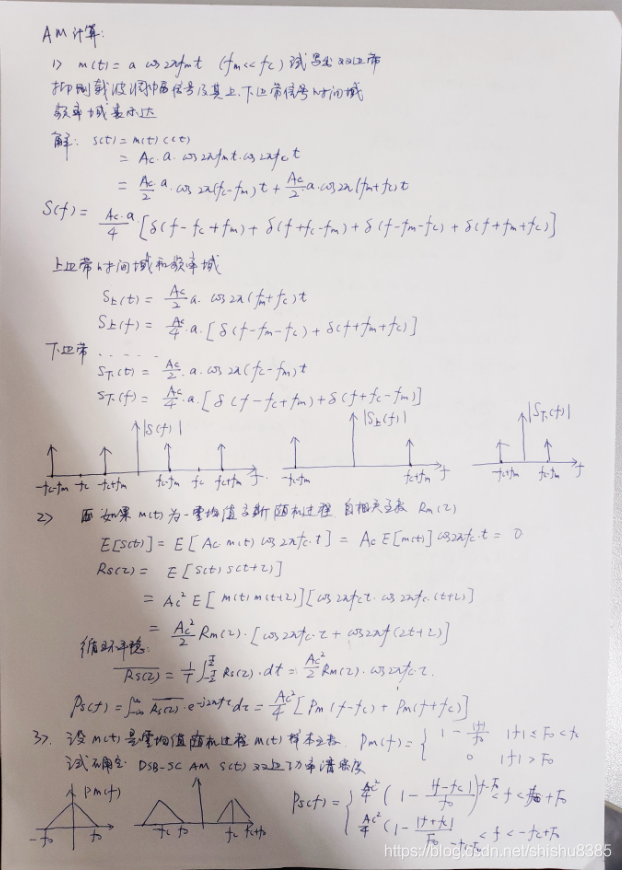 AM 计算:
1) m(t) = a cos2πfmt (fm<<fc) 试写出双边带
抑制载波调幅信号及其上.下边带信号时间域
频率域表示达
解: s(t) = m(t) c(t)
= Ac·a·cos2πfmt·cos2πfct
= Ac/2·a·cos2π(fc-fm)t + Ac/2 a·cos2π(fm+fc)t
S(f) = Ac·a/4 [δ(f-fc+fm) + δ(f+fc-fm) + δ(f-fm-fc) + δ(f+fm+fc)]
上边带时间域和频率域
S上(t) = Ac/2 a· cos2π(fm+fc)t
S上(f) = Ac/4·a·[δ(f-fm-fc) + δ(f+fm+fc)]
下边带.....
S下(t) = Ac/2·a·cos2π(fc-fm)t
S下(f) = Ac/4·a·[δ(f-fc+fm) + δ(f+fc-fm)]
|S(f)| |S上(f)| |S下(f)|
-fc-fm -fc -fc+fm fc-fm fc fc+fm f -fc-fm fc+fm f -fc+fm fc-fm f
2> 如果 m(t) 为一零均值平稳随机过程 自相关函数 Rm(τ)
E[s(t)] = E[Ac·m(t) cos2πfc·t] = Ac E[m(t)] cos2πfc·t = 0
Rs(τ) = E[s(t) s(t+τ)]
= Ac² E[m(t) m(t+τ)][cos2πfct·cos2πfc·(t+τ)]
= Ac²/2 Rm(τ)·[cos2πfc·τ + cos2πf(2t+τ)]
循环平稳:
Rs(τ) = 1/T ∫ Rs(τ)·dt = Ac²/2 Rm(τ)·cos2πfc·τ.
Ps(f) = ∫ Rs(τ)·e-j2πfτ dτ = Ac²/4 [Pm(f-fc) + Pm(f+fc)]
3>. 设 m(t) 是零均值随机过程 m(t) 样本函数. Pm(f) = { 1 - |f|/f0 |f| ≤ F0 < fc
0 |f| > F0
试确定 DSB-SC AM s(t) 双边功率谱密度
Pm(f)
-f0 f0 -fc fc fc+f0
Ps(f) = { Ac²/4 (1 - |f-fc|/f0) fc-F0 < f < fc+F0
Ac²/4 (1 - |f+fc|/F0) -fc-F0 < f < -fc+F0
https://blog.csdn.net/shishu8385